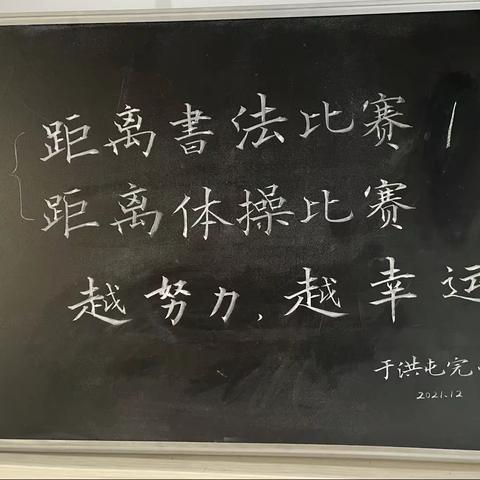 距离書法比赛1
距离体操比赛
越努力,越幸运
于洪屯完
2021.12